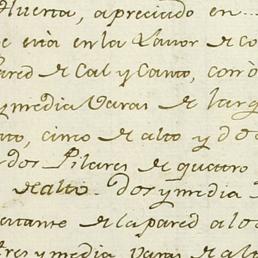 Huerta, apreciado en
e està en la Lavor de co
ared de Cal y Canto, con ò
y media Varas de larg
to, cinco de alto y dos
dos Pilares de quatro
de alto. Dos y media
estante de la pared a los
tres y media varas de alt